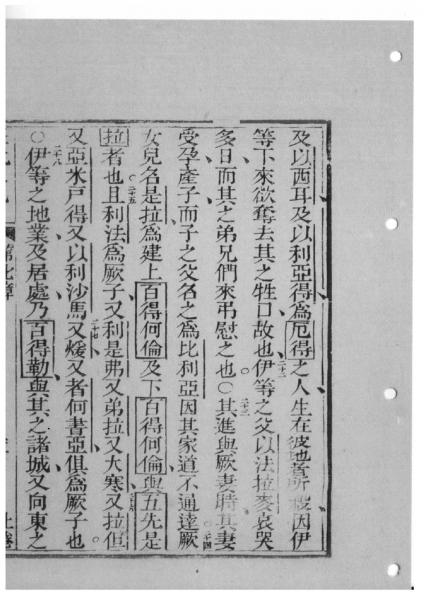 及以西耳及以利亞得爲厄得之人生在彼地者所殺因伊
等下來欲奪去其之牲口故也伊等之父以法拉麥哀哭
多日而其之弟兄們來弔慰之也○其進與厥妻時其妻
受孕產子而子之父名之爲比利亞因其家道不通達厥
女兒名是拉爲建上百得何倫及下百得何倫與五先是
拉者也且利法爲厥子又利是弗又弟拉又大寒又拉但
又亞米戶得又以利沙馬又煖又者何書亞俱爲厥子也
○伊等之地業及居處乃百得勒與其之諸城又向東之
二十二
二十三
二十四
二十五
二十七
二十八
第七章